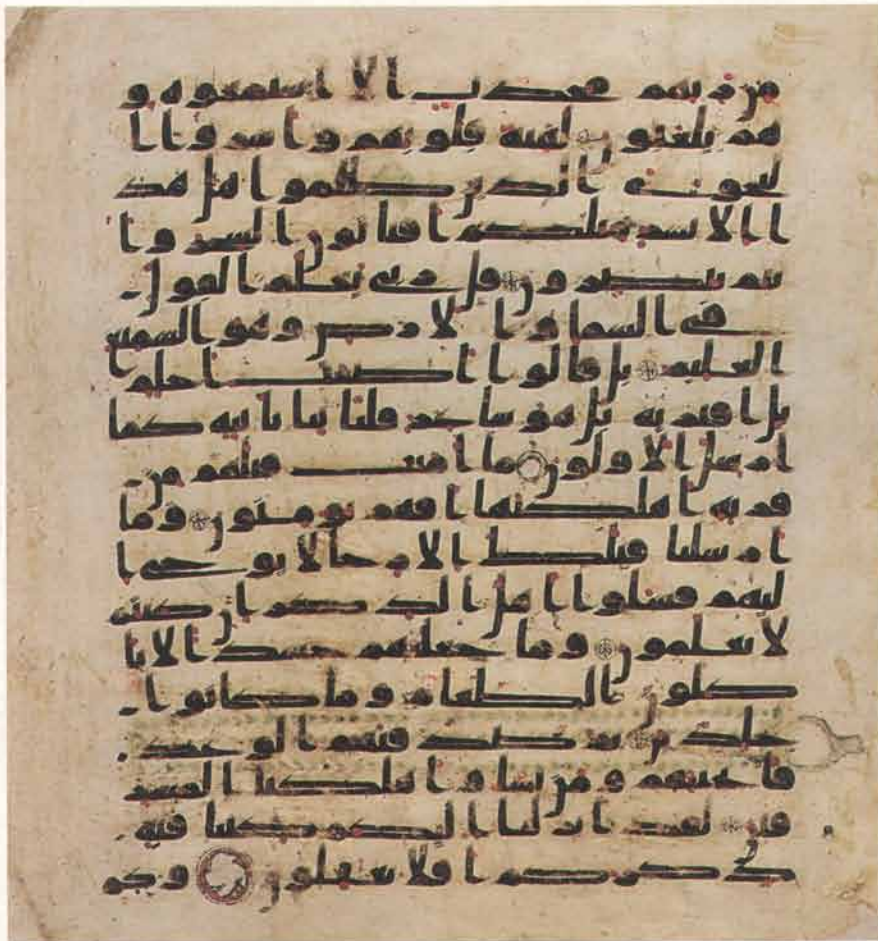 من ربهم محدث الا استمعوه و
هم يلعبون لهية قلوبهم واسروا ا
لنجوى الذين ظلموا هل هذ
ا الا بشر مثلكم افتاتون السحر وا
نتم تبصرون قل ربي يعلم القول
في السما والارض وهو السميع
العليم بل قالوا اضغث احلم
بل افتريه بل هو شاعر فلياتنا باية كما
ارسل الاولون ما امنت قبلهم من
قرية اهلكنها افهم يومنون وما
ارسلنا قبلك الا رجالا يوحى ا
ليهم فسلوا اهل الذكر ان كنتم
لا تعلمون وما جعلنهم جسدا لا يا
كلون الطعام وما كانوا
خلدين ثم صدقنهم الوعد
فانجينهم ومن نشا واهلكنا المسر
فين لقد انزلنا اليكم كتبا فيه
ذكركم افلا تعقلون وكم